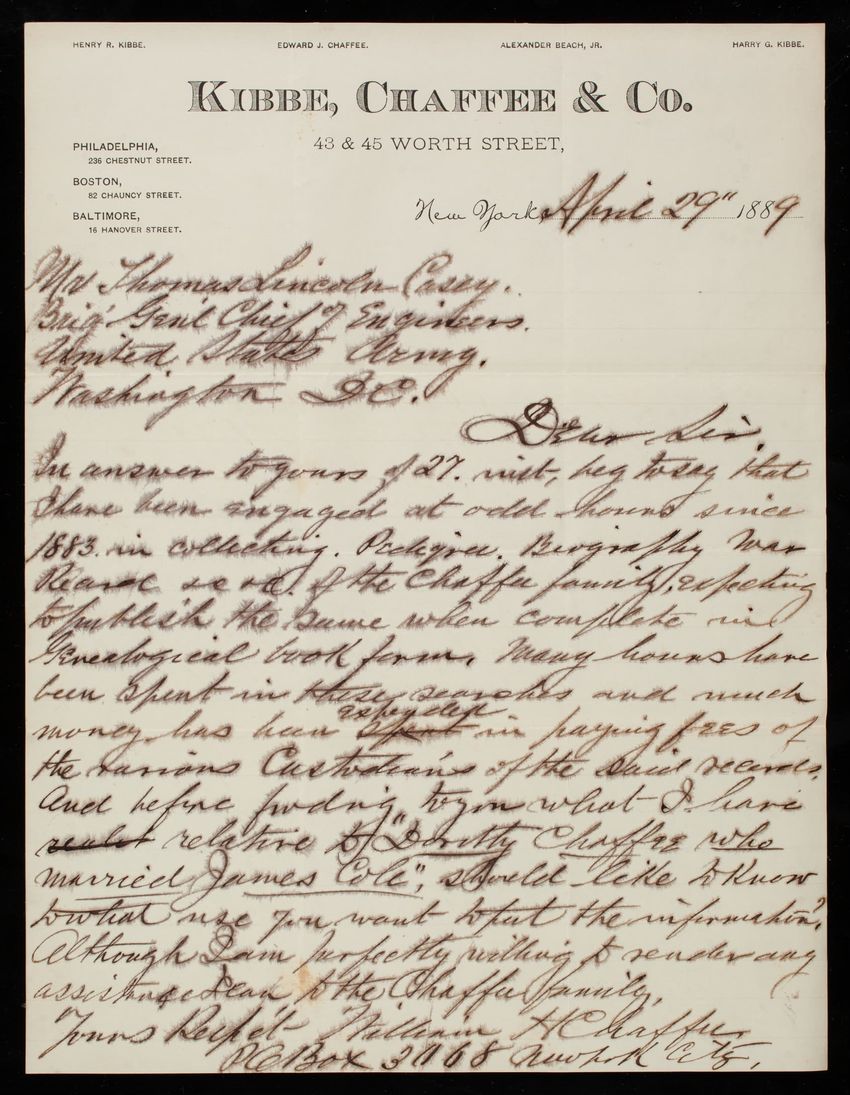 HENRY R. KIBBE. EDWARD J. CHAFFEE. ALEXANDER BEACH, JR. HARRY G. KIBBE.
KIBBE, CHAFFEE & CO.
43 & 45 WORTH STREET,
PHILADELPHIA,
236 CHESTNUT STREET.
BOSTON,
82 CHAUNCY STREET.
BALTIMORE,
16 HANOVER STREET.
New York, April 29" 1889
Mr Thomas Lincoln Casey.
Brig' Gen'l Chief of Engineers.
United States Army.
Washington D.C.
Dear Sir.
In answer to yours of 27. inst, beg to say that
I have been engaged at odd hours since
1883. in collecting. Pedigree. Biography War
Record &c &c. of the Chaffee family, expecting
to publish the same when complete in
Genealogical book form. Many hours have
been spent in these searches and much
money has been spent expended in paying fees of
the various Custodians of the said records.
And before you what I have
relative to "Dorothy Chaffee who
married James Cole", should like to know
to what use you want to put the information?
Although I am perfectly willing to render any
assistance I can to the Chaffee family,
Yours Respt William H Chaffee
P.O Box 3068 New York City.